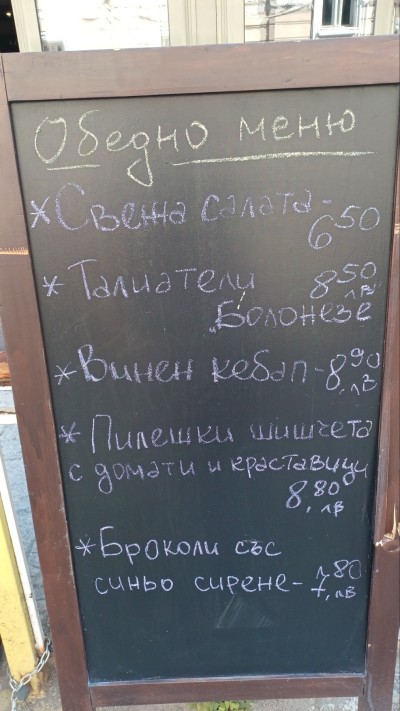 Обедно меню
*Свежа салата-
6 50
*Талиатели 8 50 лв
„Болонезе
*Винен кебап-8,90 лв
*Пилешки шишчета
с домати и краставици
8,80 лв
*Броколи със
синьо сирене-7,80 лв